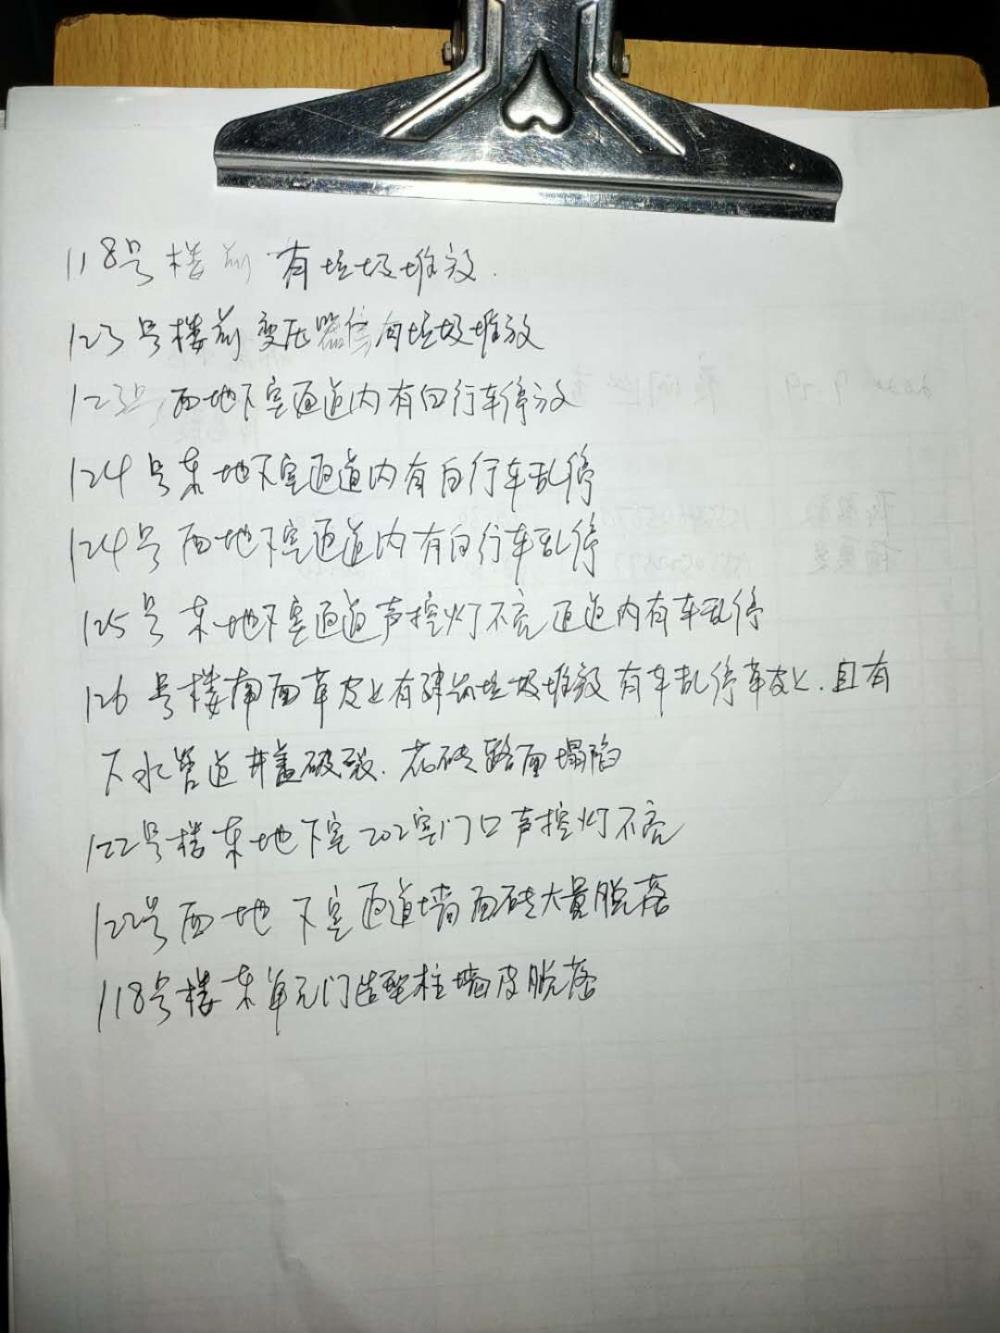 118号楼前有垃圾堆放.
123号楼前变压器旁有垃圾堆放
123号西地下室通道内有自行车停放
124号东地下室通道内有自行车乱停
124号西地下室通道内有自行车乱停
125号东地下室通道声控灯不亮 通道内有车乱停
126号楼南面草皮上有建筑垃圾堆放 有车乱停草皮上.且有
下水管道井盖破裂.花砖路面塌陷
122号楼东地下室202室门口声控灯不亮
122号西地下室通道墙面砖大量脱落
118号楼东单元门造型柱墙皮脱落